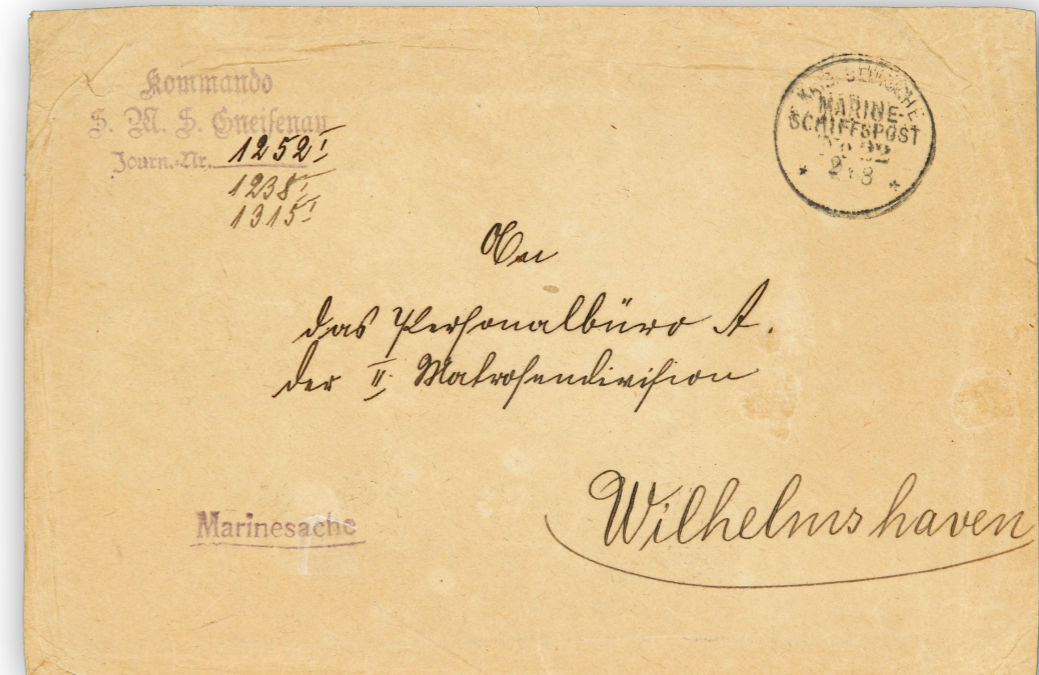 Kommando
S. M. S. Gneisenau
Journ.-Nr. 1252 I
1238 I
1315 I
KAIS. DEUTSCHE
MARINE-
SCHIFFSPOST
An
das Personalbüro A.
der II. Matrosendivision
Wilhelmshaven
Marinesache